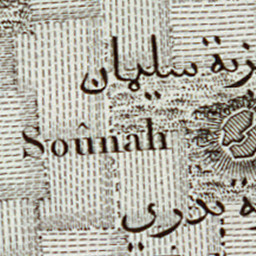 سليمان
Soûnah
بدري